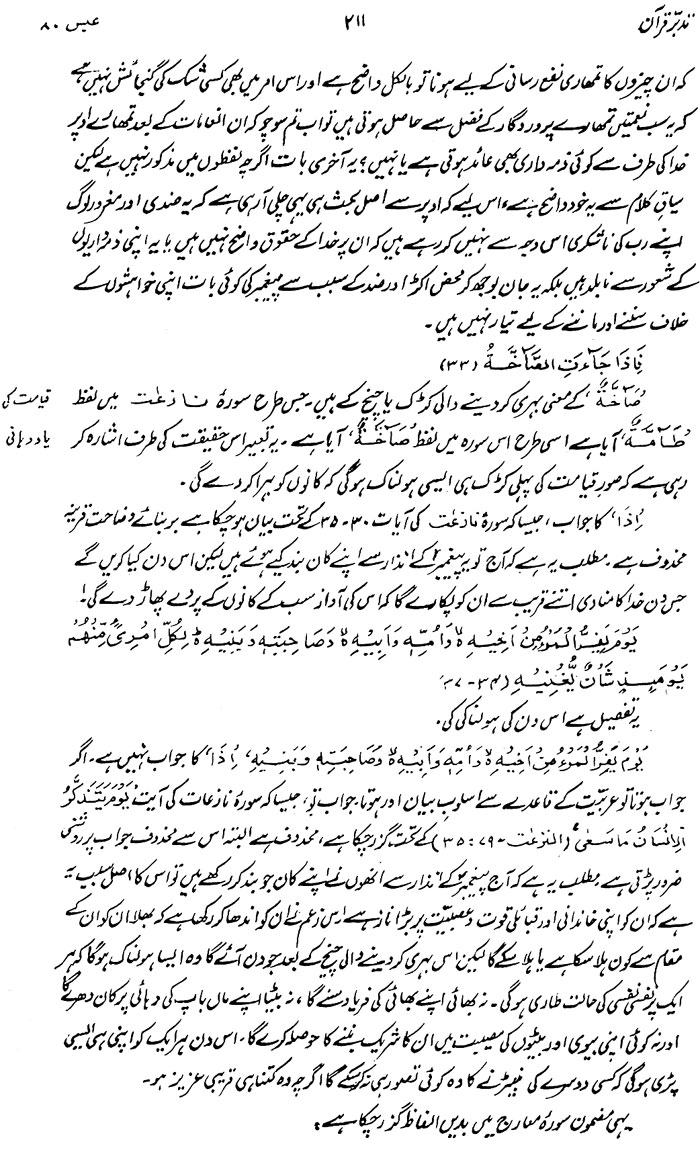 تدبرِ قرآن ۲۱۱ عبس ۸۰
کہ ان چیزوں کا تمھاری نفع رسانی کے لیے ہونا تو بالکل واضح ہے اور اس امر میں بھی کسی شک کی گنجائش نہیں ہے
کہ یہ سب نعمتیں تمھارے پروردگار کے فضل سے حاصل ہوتی ہیں تو اب تم سوچو کہ ان انعامات کے بعد تمھارے اوپر
خدا کی طرف سے کوئی ذمہ داری بھی عائد ہوتی ہے یا نہیں؟ یہ آخری بات اگرچہ لفظوں میں مذکور نہیں ہے لیکن
سیاق کلام سے یہ خود واضح ہے، اس لیے کہ اوپر سے اصل بحث ہی یہی چلی آ رہی ہے کہ یہ ضدی اور مغرور لوگ
اپنے رب کی ناشکری اس وجہ سے نہیں کر رہے ہیں کہ ان پر خدا کے حقوق واضح نہیں ہیں یا یہ اپنی ذمہ داریوں
کے شعور سے نابلد ہیں بلکہ یہ جان بوجھ کر محض اکڑ اور ضد کے سبب سے پیغمبر کی کوئی بات اپنی خواہشوں کے
خلاف سننے اور ماننے کے لیے تیار نہیں ہیں۔
فَاِذَا جَآءَتِ الصَّآخَّةُ (۳۳)
'صَآخَّةٌ' کے معنی بہری کر دینے والی کڑک یا چیخ کے ہیں۔ جس طرح سورۂ نازعٰت میں لفظ قیامت کی
'طَآمَّةٌ' آیا ہے اسی طرح اس سورہ میں لفظ 'صَآخَّةٌ' آیا ہے۔ یہ تعبیر اس حقیقت کی طرف اشارہ کر یاددہانی
رہی ہے کہ صور قیامت کی پہلی کڑک ہی ایسی ہولناک ہوگی کہ کانوں کو بہرا کر دے گی۔
'اِذَا' کا جواب، جیسا کہ سورۂ نازعٰت کی آیات ۳۰-۳۵ کے تحت بیان ہو چکا ہے بربنائے وضاحت قرینہ
محذوف ہے۔ مطلب یہ ہے کہ آج تو یہ پیغمبرؐ کے انذار سے اپنے کان بند کیے ہوئے ہیں لیکن اس دن کیا کریں گے
جس دن خدا کا منادی اتنے قریب سے ان کو پکارے گا کہ اس کی آواز سب کے کانوں کے پردے پھاڑ دے گی!
يَوْمَ يَفِرُّ الْمَرْءُ مِنْ اَخِيْهِ ۙ وَاُمِّهٖ وَاَبِيْهِ ۙ وَصَاحِبَتِهٖ وَبَنِيْهِ ؕ لِكُلِّ امْرِئٍ مِّنْهُمْ
يَوْمَئِذٍ شَاْنٌ يُّغْنِيْهِ (۳۴-۳۷)
یہ تفصیل ہے اس دن کی ہولناکی کی۔
'يَوْمَ يَفِرُّ الْمَرْءُ مِنْ اَخِيْهِ ۙ وَاُمِّهٖ وَاَبِيْهِ ۙ وَصَاحِبَتِهٖ وَبَنِيْهِ'، 'اِذَا' کا جواب نہیں ہے۔ اگر
جواب ہوتا تو عربیت کے قاعدے سے اسلوب بیان اور ہوتا۔ جواب تو، جیسا کہ سورۂ نازعات کی آیت 'يَوْمَ يَتَذَكَّرُ
الْاِنْسَانُ مَا سَعٰى' (النّٰزعٰت - ۷۹ : ۳۵) کے تحت گزر چکا ہے، محذوف ہے البتہ اس سے محذوف جواب پر روشنی
ضرور پڑتی ہے۔ مطلب یہ ہے کہ آج پیغمبرؐ کے انذار سے انھوں نے اپنے کان جو بند کر رکھے ہیں تو اس کا اصل سبب یہ
ہے کہ ان کو اپنی خاندانی اور قبائلی قوت و عصبیت پر بڑا ناز ہے۔ اس زعم نے ان کو اندھا کر رکھا ہے کہ بھلا ان کو ان کے
مقام سے کون ہلا سکا ہے یا ہلا سکے گا لیکن اس بہری کر دینے والی چیخ کے بعد جو دن آئے گا وہ ایسا ہولناک ہوگا کہ ہر
ایک پر نفسی نفسی کی حالت طاری ہوگی۔ نہ بھائی اپنے بھائی کی فریاد سنے گا، نہ بیٹا اپنے ماں باپ کی دہائی پر کان دھرے گا
اور نہ کوئی اپنی بیوی اور بیٹوں کی مصیبت میں ان کا شریک بننے کا حوصلہ کرے گا۔ اس دن ہر ایک کو اپنی ہی ایسی
پڑی ہوگی کہ کسی دوسرے کی نبیڑنے کا وہ کوئی تصور ہی نہ کر سکے گا اگرچہ وہ کتنا ہی قریبی عزیز ہو۔
یہی مضمون سورۂ معارج میں بدیں الفاظ گزر چکا ہے: